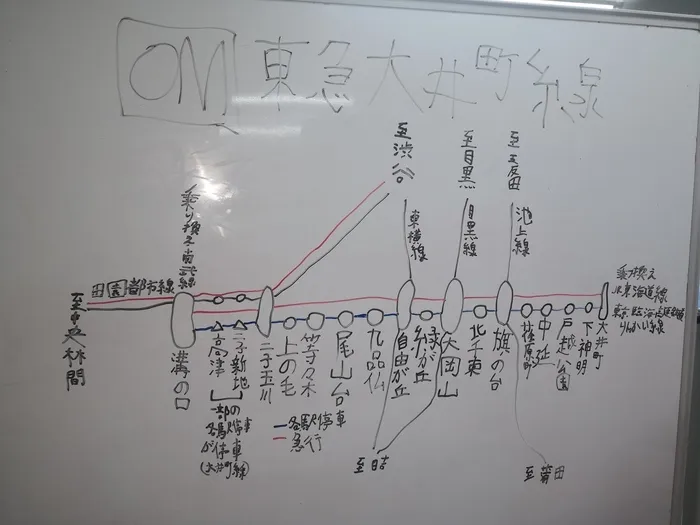 OM 東急大井町線
至渋谷
至目黒
至五反田
東横線
目黒線
池上線
乗り換え南武線
田園都市線
至中央林間
乗り換え
JR東海道線
りんかい線
溝の口
高津
二子新地
二子玉川
上の毛
等々木
尾山台
九品仏
自由が丘
緑が丘
大岡山
北千束
旗の台
荏原町
中延
戸越公園
下神明
大井町
一部の
各駅停車
が停車
(大井町線)
各駅停車
急行
至日吉
至蒲田